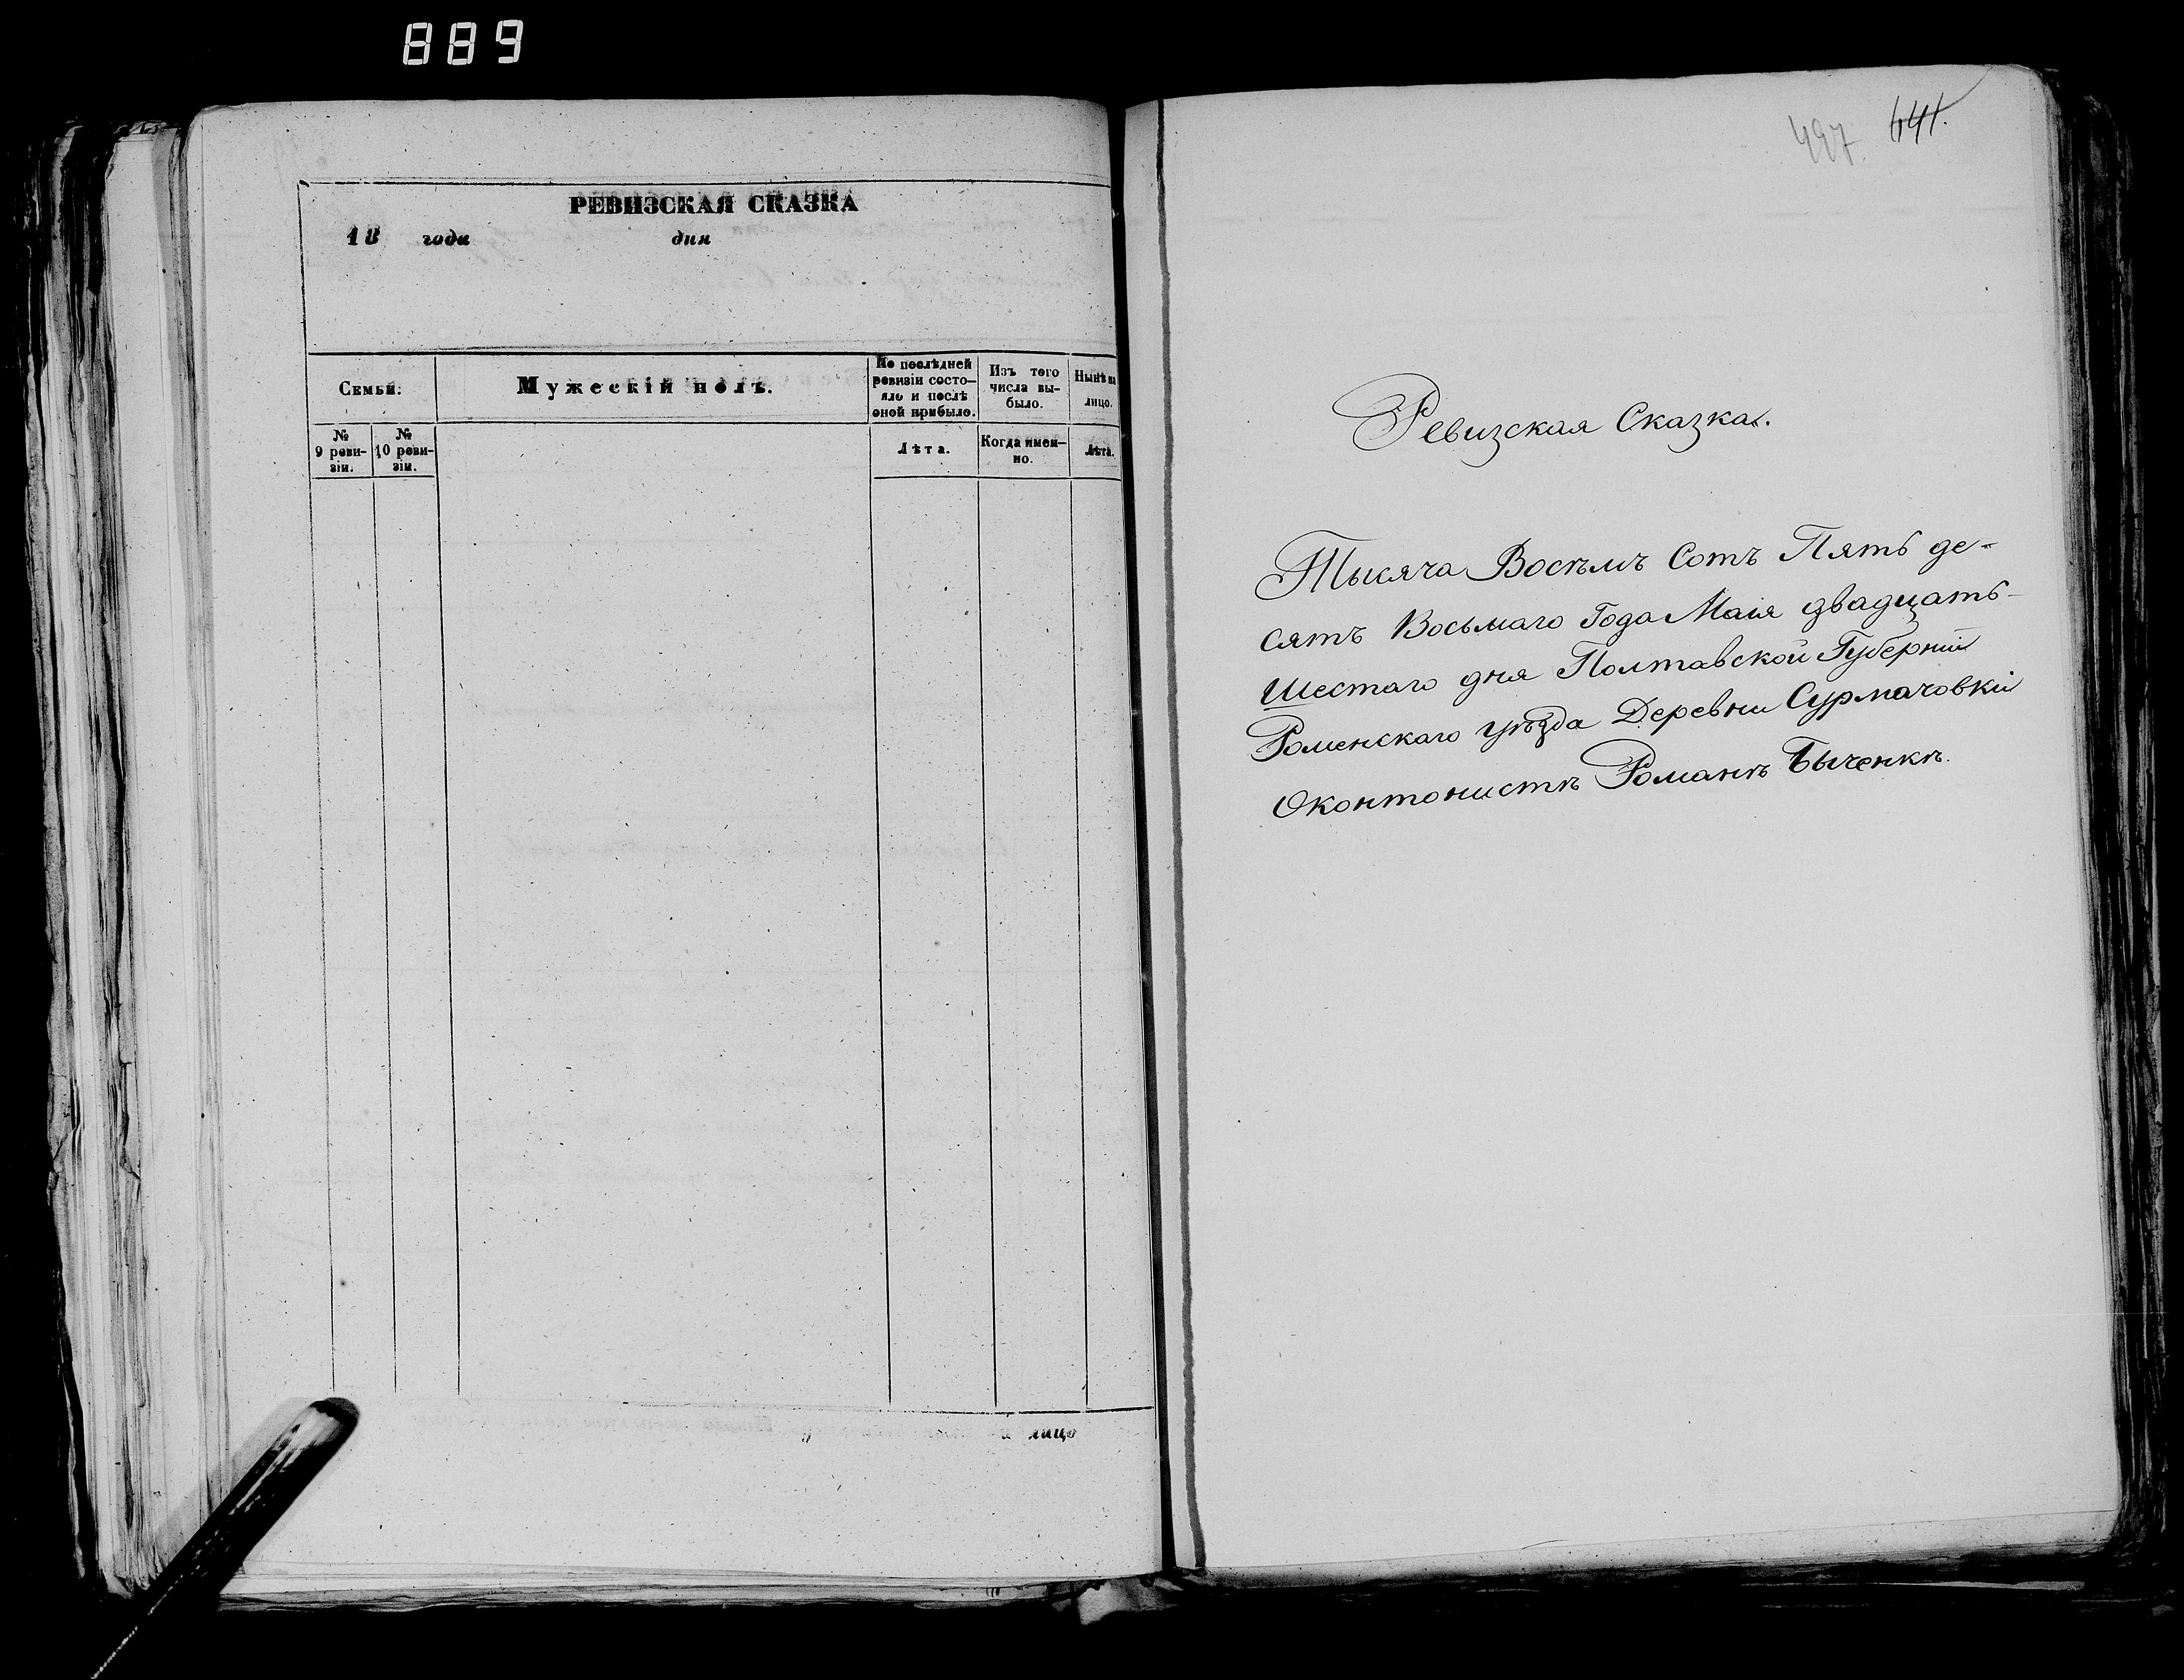 889
РЕВИЗСКАЯ СКАЗКА
18 года дня
Семьи.
Мужескій полъ.
По послѣдней
ревизіи состо-
яло и послѣ
оной прибыло.
Изъ того
числа вы-
было.
Нынѣ на
лицо.
№
9 реви-
зіи.
№
10 реви-
зіи.
Лѣта.
Когда имен-
но.
Лѣта.
лицо
497. 641.
Ревизская Сказка.
Тысяча Восѣмъ Сотъ Пять де-
сятъ Восьмаго Года Маія двадцать-
Шестаго дня Полтавской Губерніи
Роменскаго уѣзда Деревни Сурмачовкі
Окконтонистъ Романъ Быченкъ.